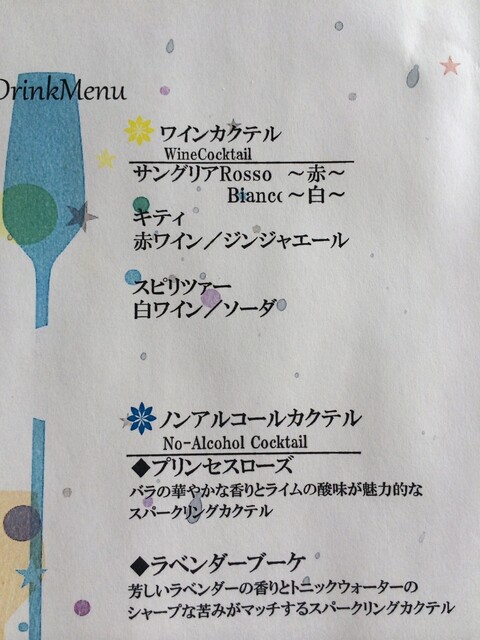 DrinkMenu
ワインカクテル
WineCocktail
サングリアRosso ～赤～
Bianco ～白～
キティ
赤ワイン／ジンジャエール
スピリツァー
白ワイン／ソーダ
ノンアルコールカクテル
No-Alcohol Cocktail
◆プリンセスローズ
バラの華やかな香りとライムの酸味が魅力的な
スパークリングカクテル
◆ラベンダーブーケ
芳しいラベンダーの香りとトニックウォーターの
シャープな苦みがマッチするスパークリングカクテル